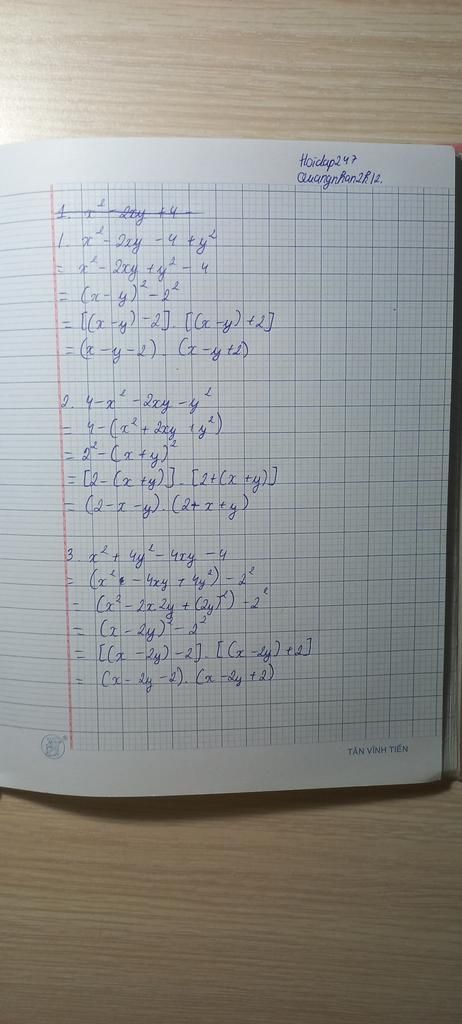 Hoidap247
Quangnhan2k12.
1. x² - 2xy + 4 -
1. x² - 2xy - 4 + y²
= x² - 2xy + y² - 4
= (x - y)² - 2²
= [(x - y) - 2] . [(x - y) + 2]
= (x - y - 2) . (x - y + 2)
2. 4 - x² - 2xy - y²
= 4 - (x² + 2xy + y²)
= 2² - (x + y)²
= [2 - (x + y)] . [2 + (x + y)]
= (2 - x - y) . (2 + x + y)
3. x² + 4y² - 4xy - 4
= (x² - 4xy + 4y²) - 2²
= (x² - 2x2y + (2y)²) - 2²
= (x - 2y)² - 2²
= [(x - 2y) - 2] . [(x - 2y) + 2]
= (x - 2y - 2) . (x - 2y + 2)
TÂN VĨNH TIẾN